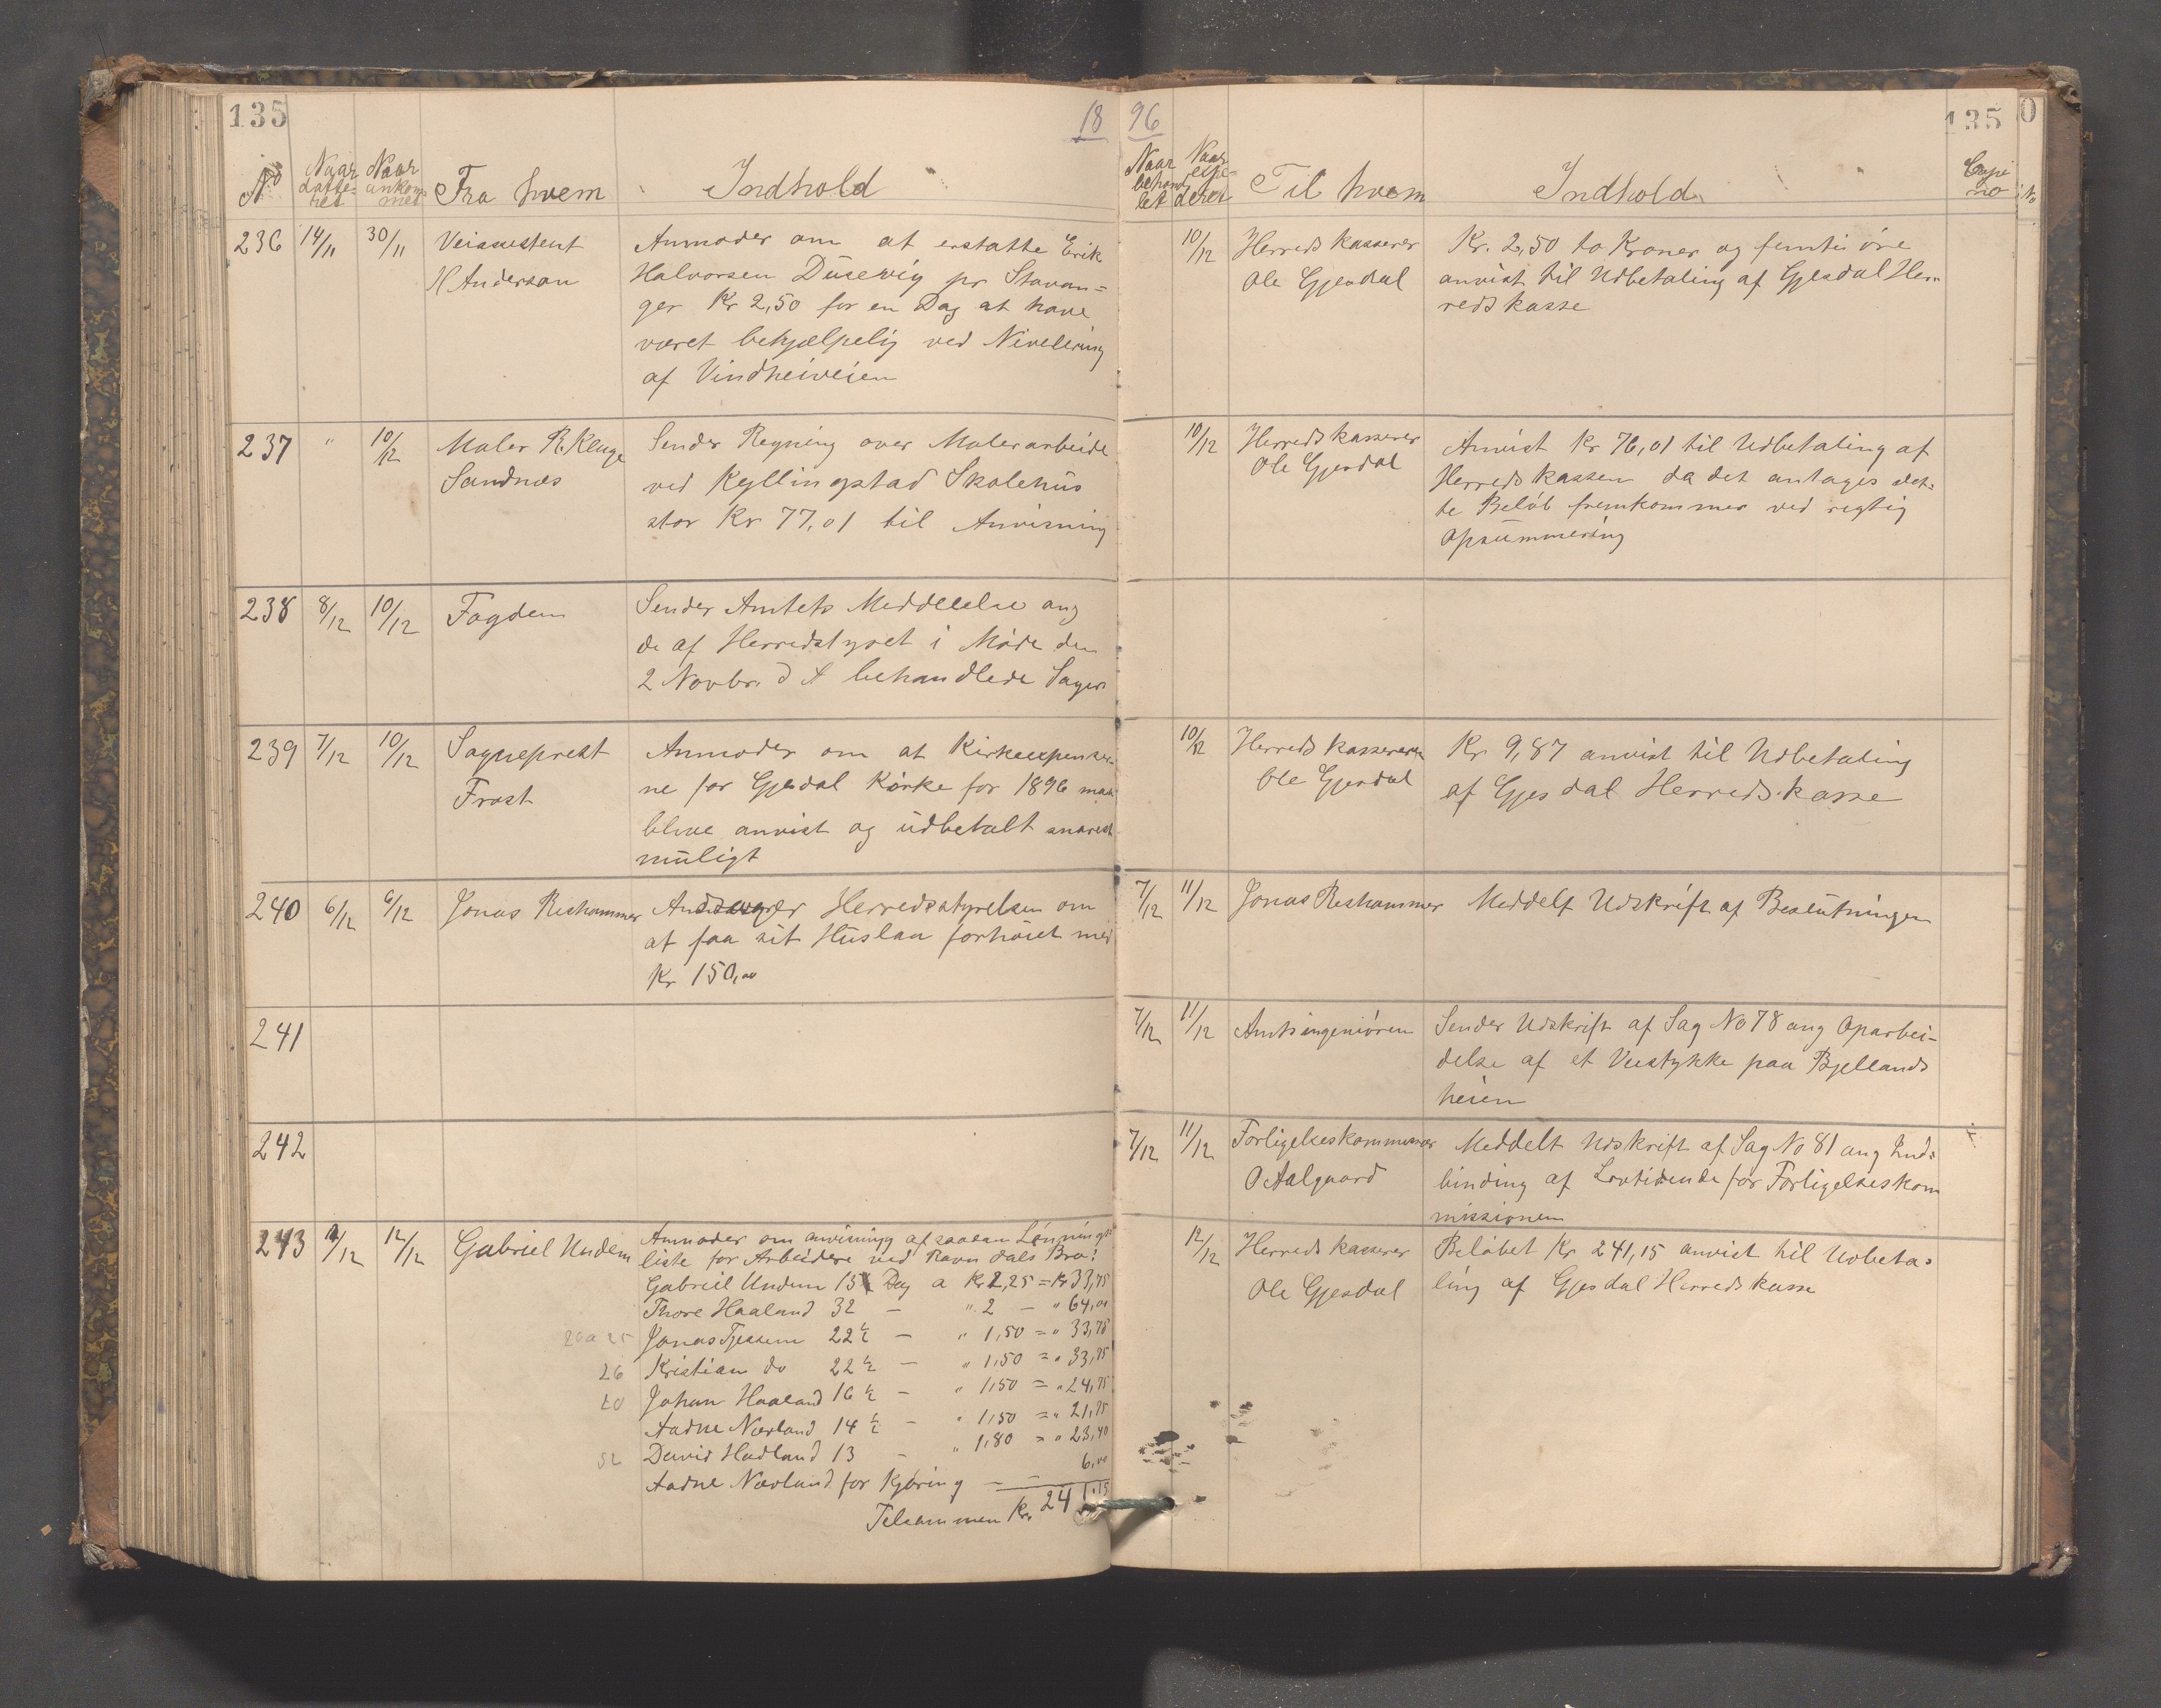 135
18
No
Naar datteret
Naar ankommet
Fra hvem
Indhold
236
14/11
30/11
Veiassistent
H Anderson
Anmoder om at erstatte Erik
Halvorsen Dusevig pr Stavan=
ger Kr 2,50 for en Dag at have
været behjælpelig ved Nivelering
af Vindheiveien
237
"
10/12
Maler R. Kluge
Sandnæs
Sender Regning over Malerarbeide
ved Kyllingstad Skolehus
stor Kr 77,01 til Anvisning
238
8/12
10/12
Fogden
Sender Amtets Meddelelse ang
de af Herredstyret i Møde den
2 Novbr. d A behandlede Sager
239
7/12
10/12
Sogneprest
Frost
Anmoder om at Kirkeexpenser
ne for Gjesdal Kirke for 1896 maa
blive anvist og udbetalt snarest
muligt
240
6/12
6/12
Jonas Reshammer
Herredsstyrelsen om
at faa sit Huslaan forhøiet med
Kr 150,00
241
242
243
12/12
12/12
Gabriel Undem
Anmoder om anvisning af saadan Lønnings
liste for Arbeidere ved Ravndals Bro:
Gabriel Undem 15 Dag a Kr 2,25 = Kr 33,75
Thore Haaland 32 — " 2 — " 64,00
20 a 25
Jonas Tjessem 22 ½ — " 1,50 = " 33,75
26
Kristian do 22 ½ — " 1,50 = " 33,75
20
Johan Haaland 16 ½ — " 1,50 = " 24,75
Aadne Nærland 14 ½ — " 1,50 = " 21,75
52
David Hadland 13 — " 1,80 = " 23,40
Aadne Nærland for Kjøring — — 6,00
Tilsammen Kr. 241,15
96
135
0
Naar behandlet
Naar expederet
Til hvem
Indhold
Copi
no
No
10/12
Herredskasserer
Ole Gjesdal
Kr. 2,50 to Kroner og femti øre
anvist til Udbetaling af Gjesdal Her-
redskasse
10/12
Herredskasserer
Ole Gjesdal
Anvist Kr 76,01 til Udbetaling af
Herredskassen da det antages det=
te Beløb fremkommer ved rigtig
Opsummering
10/12
Herredskasserer
Ole Gjesdal
Kr. 9,87 anvist til Udbetaling
af Gjesdal Herredskasse
7/12
11/12
Jonas Reshammer
Meddelt Udskrift af Beslutningen
7/12
11/12
Amtsingeniøren
Sender Udskrift af Sag No 78 ang Oparbei-
delse af et Veistykke paa Bjellands
heien
7/12
11/12
Forligelseskommissær
O Aalgaard
Meddelt Udskrift af Sag No 81 ang Ind=
binding af Lovtidende for Forligelseskom
missionen
12/12
Herredskasserer
Ole Gjesdal
Beløbet Kr 241,15 anvist til Udbeta=
ling af Gjesdal Herredskasse